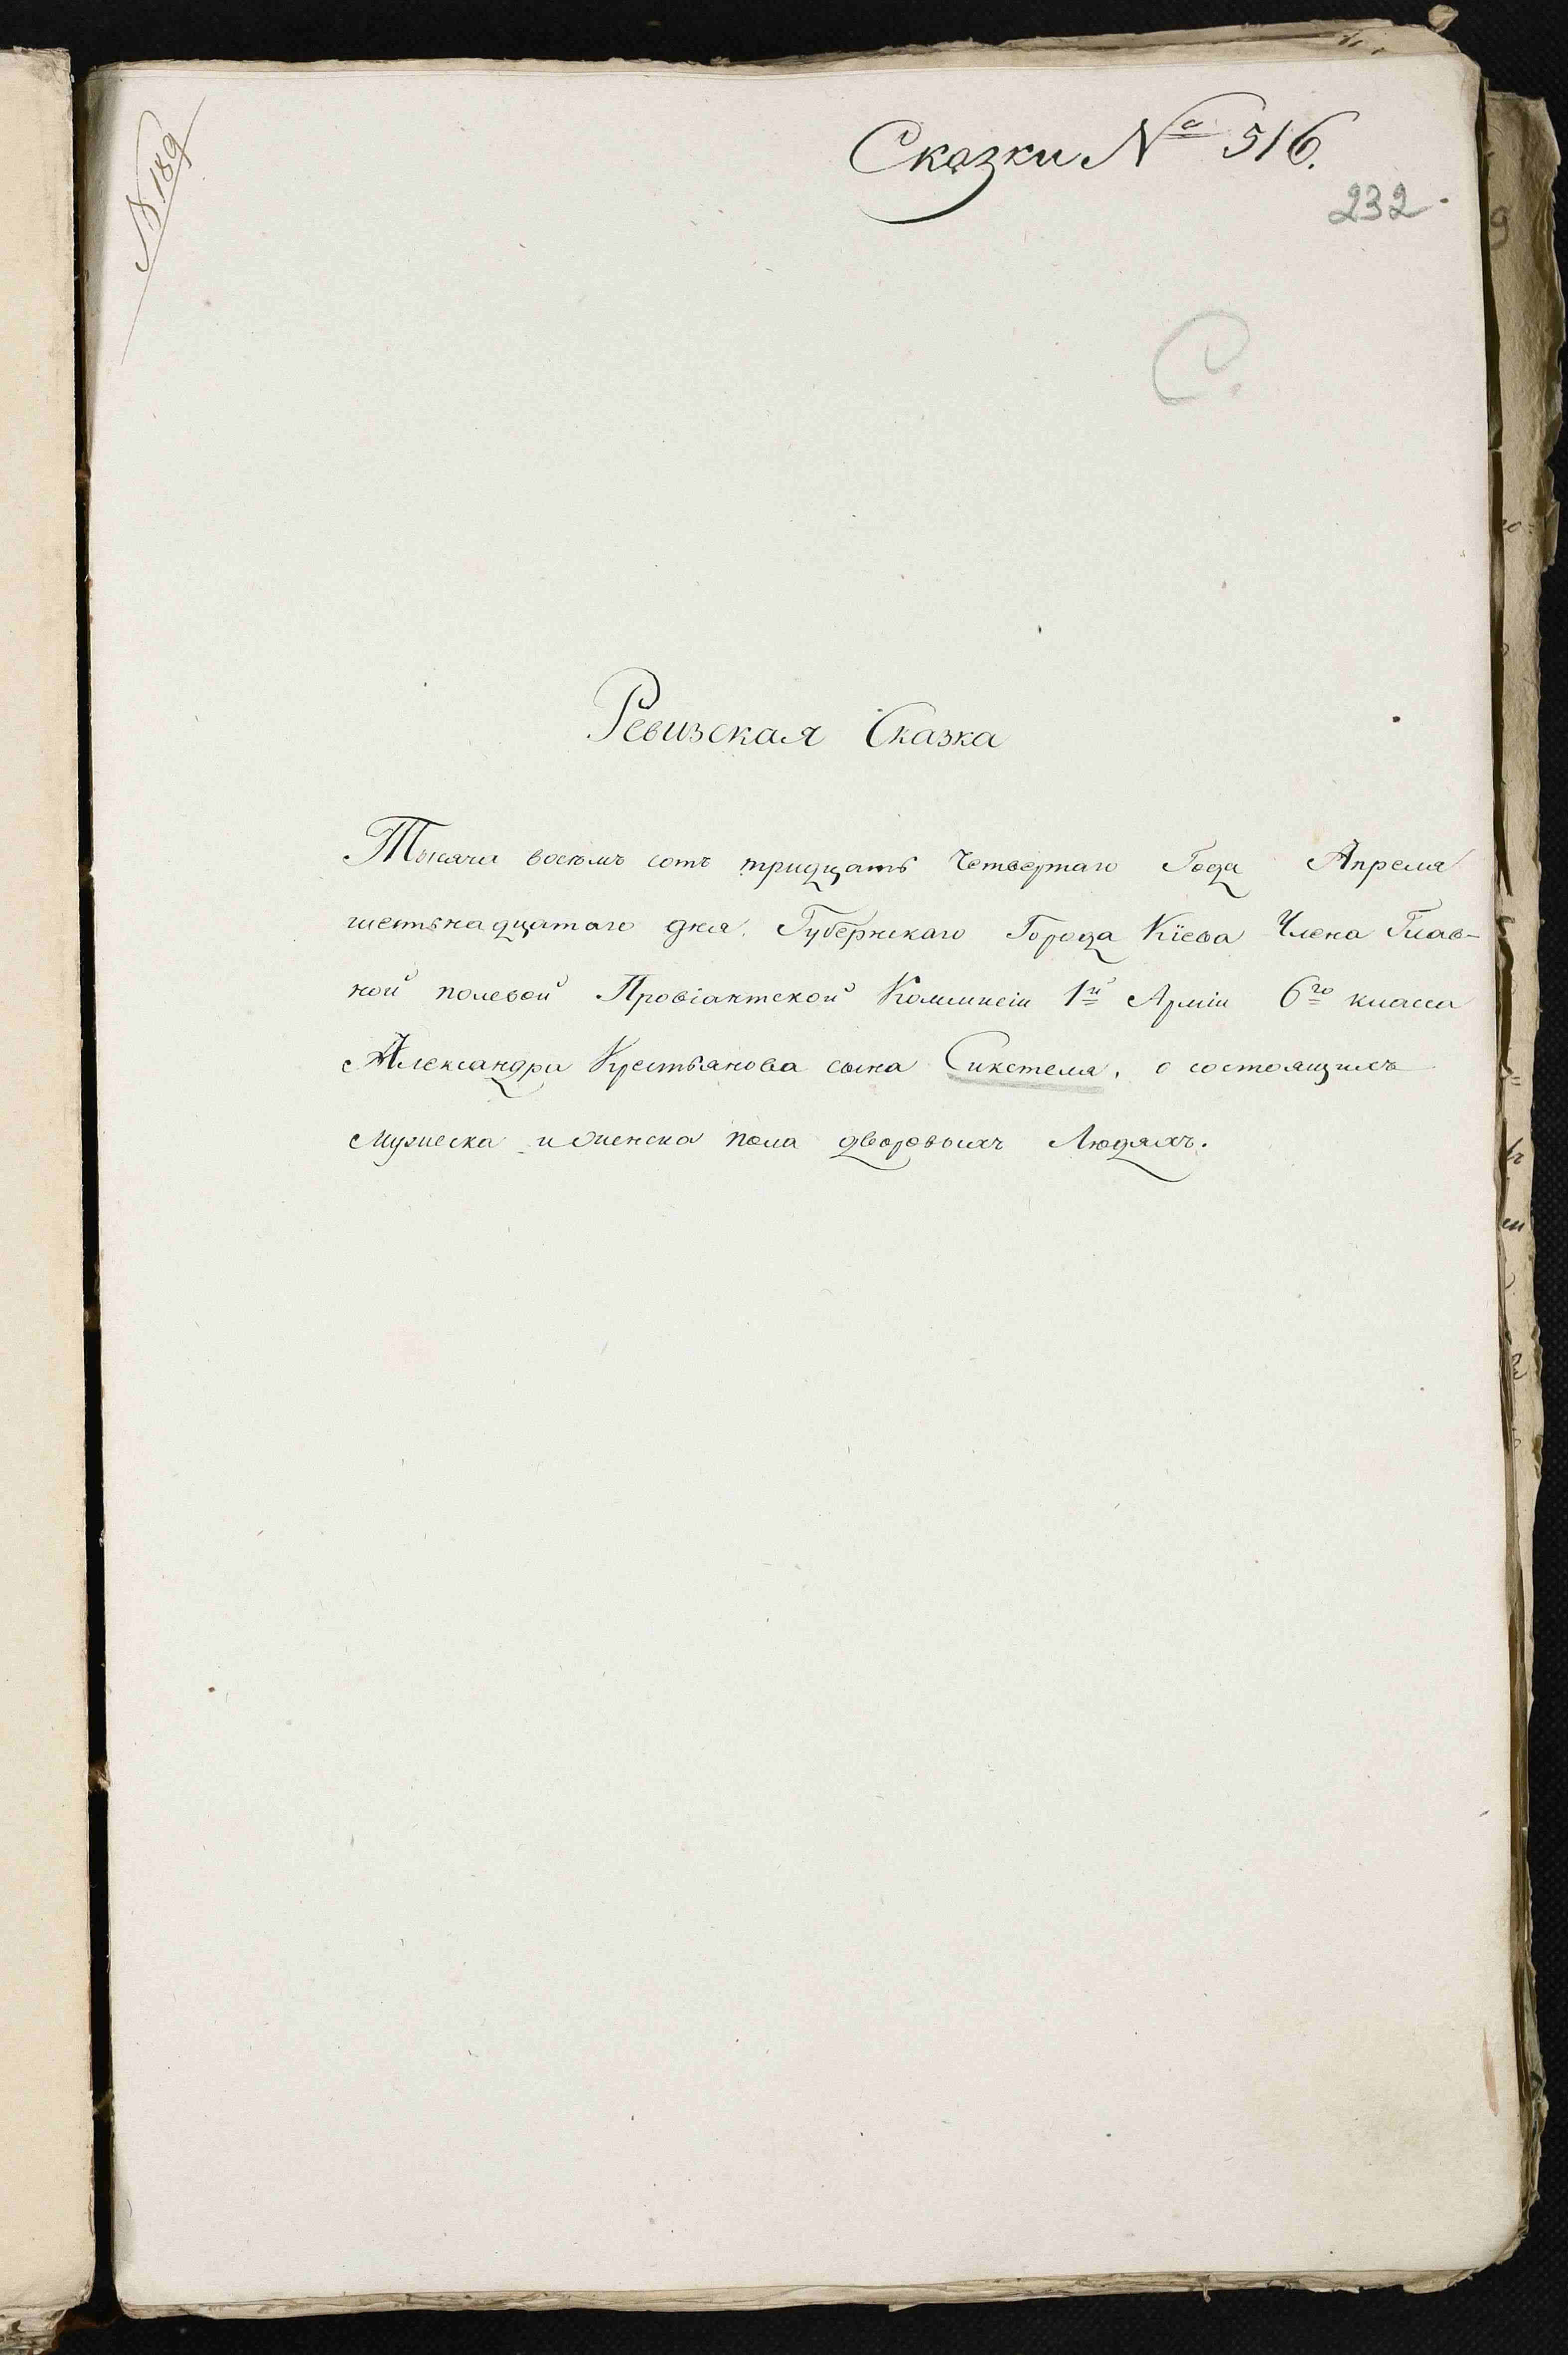 № 189
Сказки № 516.
232.
С.
Ревизская Сказка
Тысяча восемь сотъ тридцать Четвертаго Года Апреля
шестьнадцатаго дня. Губернскаго Города Кіева Члена Глав-
ной полевой Провіантской Коммисіи 1й Арміи 6го класса
Александра Крестьянова сына Сикстеля, о состоящихъ
мужеска и женска пола дворовыхъ Людяхъ.